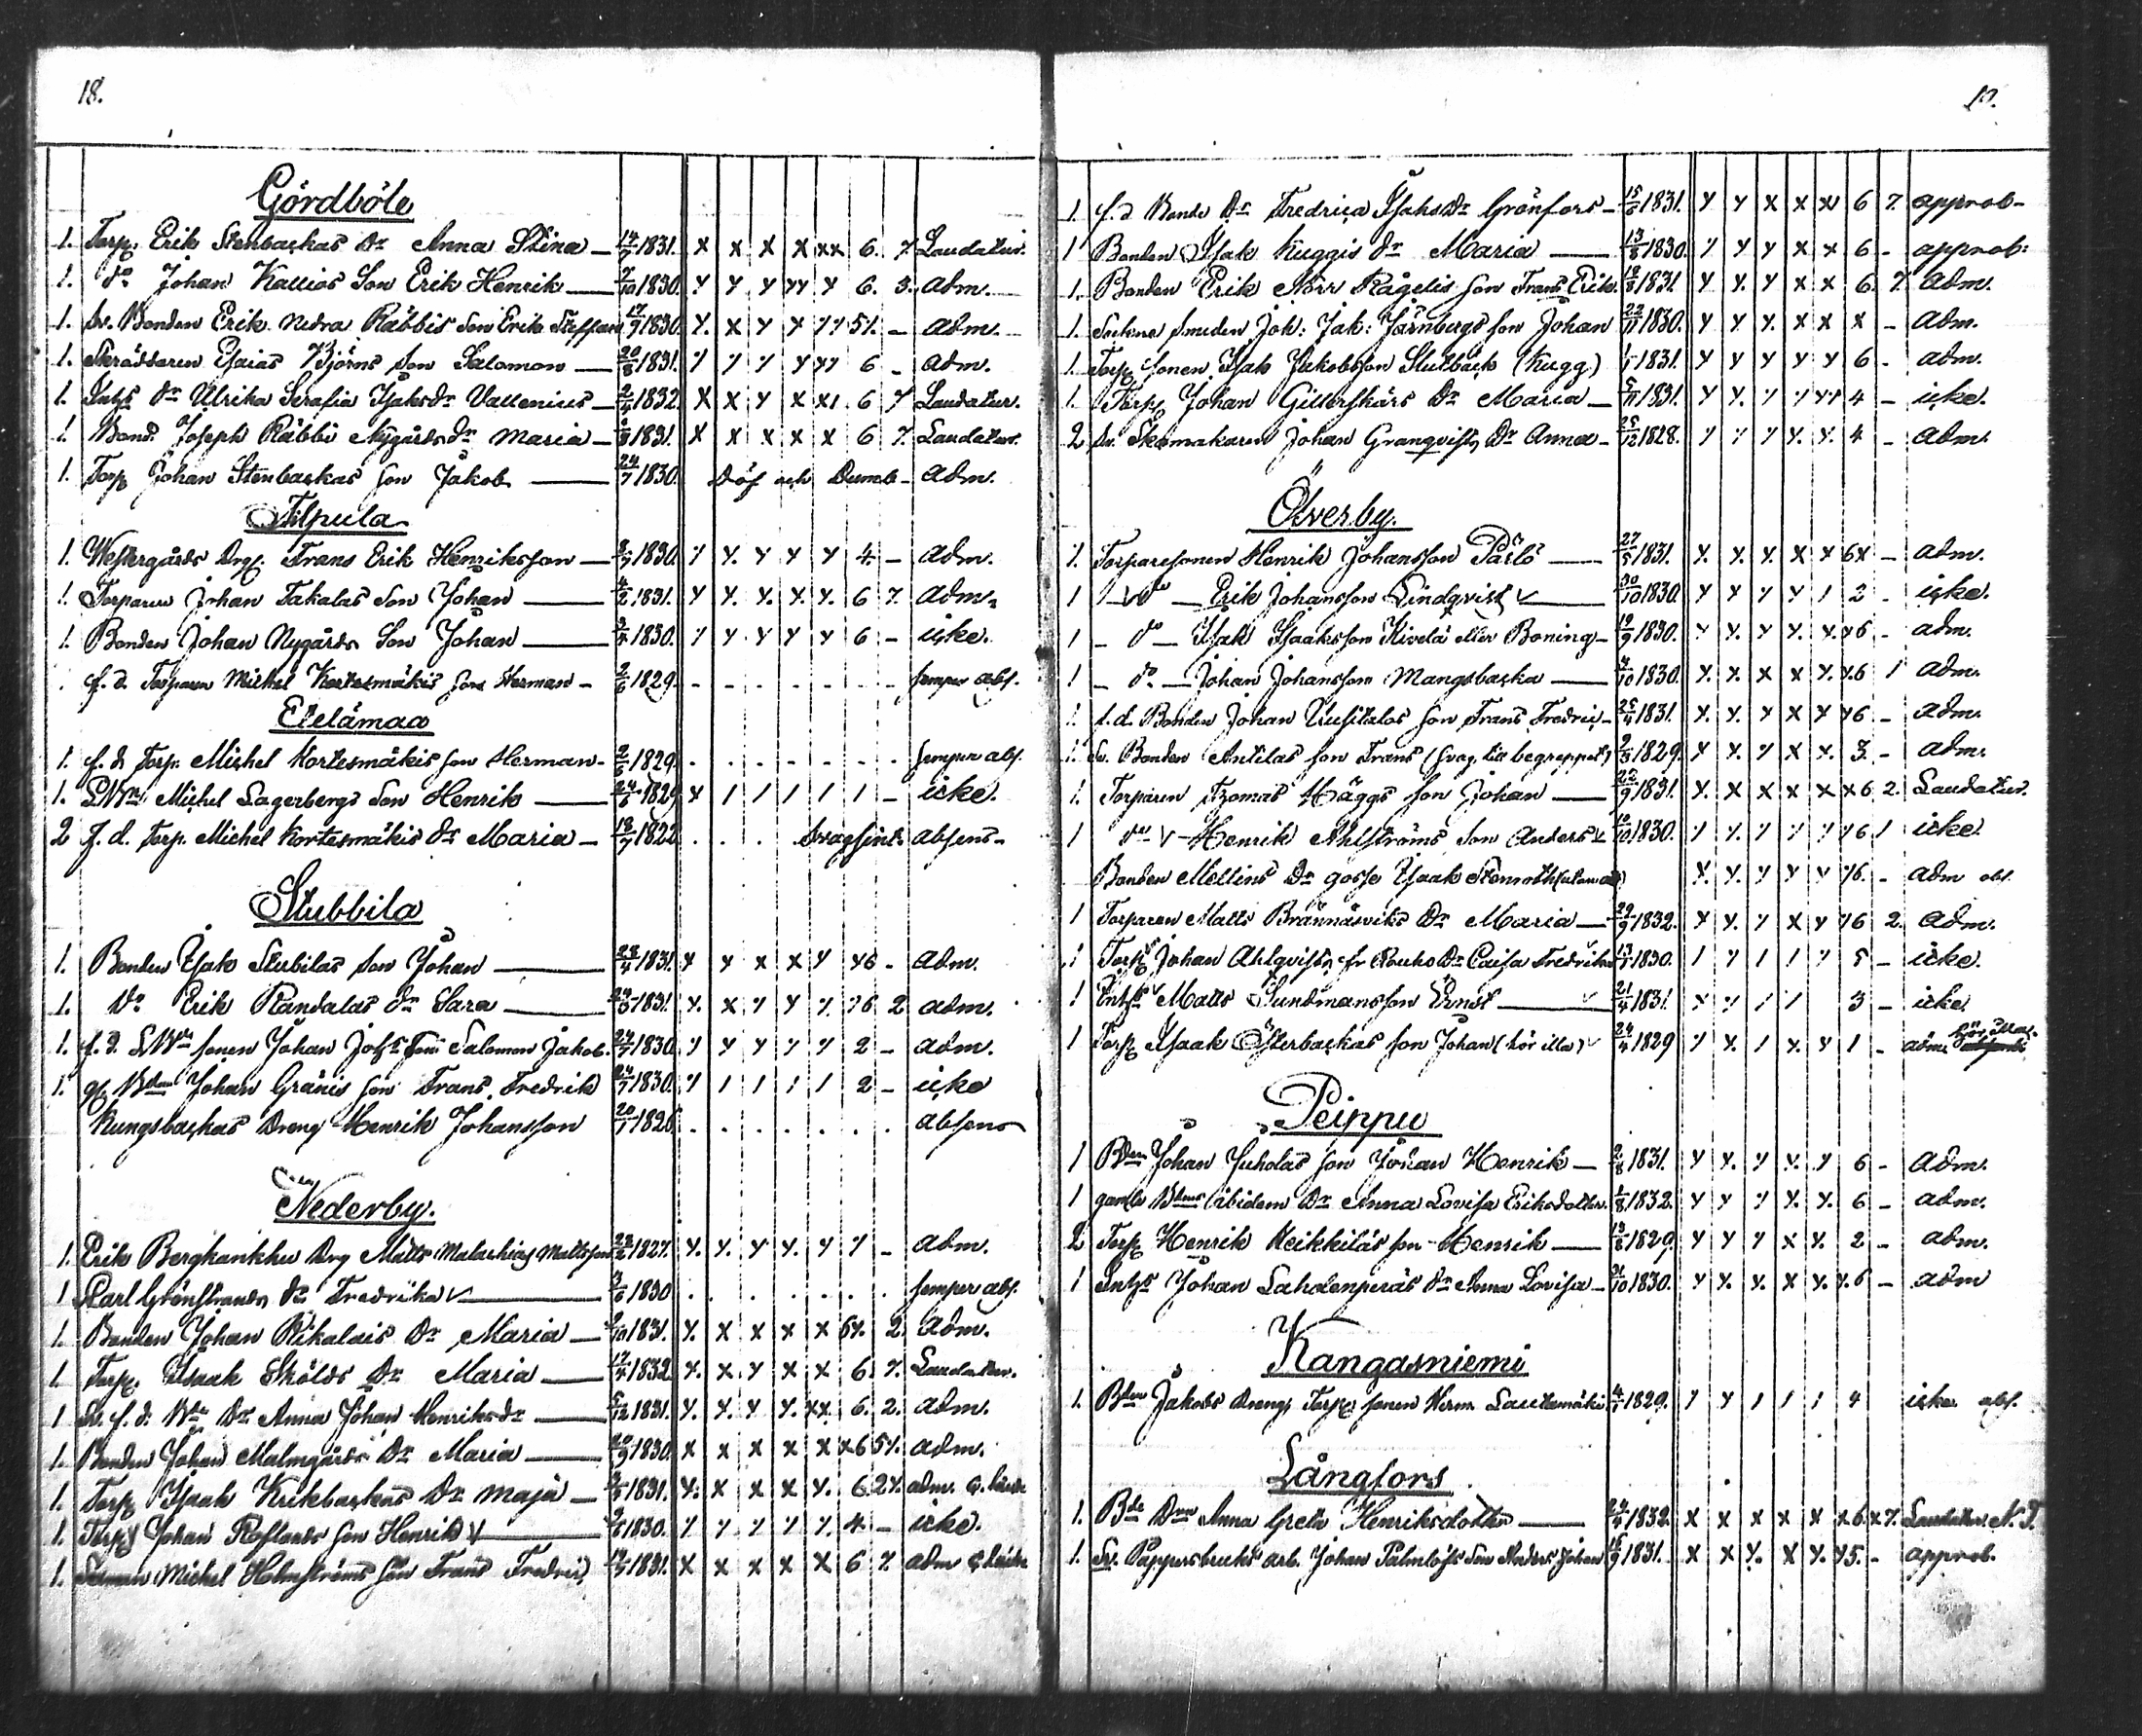 18.
Gördböle
1. Torp. Erik Stenbackas Dr Anna Stina — 1831. x x x x xx 6. 7. Laudatur.
1. do Johan Kallios Son Erik Henrik — 7/10 1830. y y y yy y 6. 3. adm.
1. Sv. Bonden Erik Nedra Räbbis Son Erik Steffan 1830. y. x y y yy 5 - adm.
1. Skräddaren Esaias Björns Son Salomon — 20/8 1831. y y y yy 6 - adm.
1. Inhys Dr Ulrika Serafia Isaksdr Vallenius — 2/4 1832. x x y x x1. 6 7 Laudatur.
1. Bond. Joseph Räbbi Nygårds dr Maria — 1831. x x x x x 6 7. Laudatur.
1. Torp Johan Stenbackas Son Jakob — 24/7 1830. Döf och Dumb - adm.
Filpula
1. Westergårds Drg. Frans Erik Henriksson — 1830. y y. y y y 4 - adm.
1. Torparen Johan Takalas Son Johan — 4/2 1831. y y. y. y. y. 6 7. adm.
1. Bonden Johan Nygårds Son Johan — 1830. y y y y y 6 - icke.
f. d. Torparen Mickel Kortesmäkis Son Herman - 2/6 1829. - - - - - - - semper abs.
Etelämaa
1. f. d. Torp. Michel Kortesmäkis Son Herman - 2/6 1829. . . . . . . . semper abs.
1. Michel Lagerbergs Son Henrik — 24/6 1829 x 1 1 1 1 1 - icke.
2 f. d. Torp. Michel Kortesmäkis Dr Maria — 18/7 1822. . . . svagsint. absens -
Stubbila
1. Bonden Isak Stubilas Son Johan — 1831. y y x x y y6 - adm.
1. Do Erik Randalas Dr Sara — 1831. y. x y y y. y6 2 adm.
1. f. d. sonen Johan Salomon Jakob. 1830. y y y y y 2 - adm.
1. Johan Gränis Son Frans Fredrik 1830. y 1 1 1 1 2 - icke
Kungsbackas Dreng Henrik Johansson 20/1 1826. . . . . . . . absens
Nederby.
1. Erik Bergkankku Drg Matts Malachias Mattsson 1827. y. y. y y. y y - adm.
1 Karl Grönstrands Dr Fredrika — 1830 . . . . . . . semper abs.
1. Bonden Johan Rikalais Dr Maria — 1831. y. x x x x 6y. 2. adm.
1 Torp. Isaak Skölds Dr Maria — 17/4 1832. y. x y x x 6 7. Laudatur.
1 Sv. f. d. Dr Anna Johan Henriksdr — 5/12 1831. y. y. y y. xx 6. 2. adm.
1. Bonden Johan Malmgårds Dr Maria — 1830. x x x x x x6 5 adm.
1. Torp Isaak Krikbackas Dr Maja — 1831. y. x x x y. 6 2 adm.
1. Torp Johan Roflands Son Henrik — 1830. y y. y y y. 4 - icke.
1. Michel Holmströms Son Frans Fredric 1831. x x x x x 6 7. adm
1. f. d. Bonde Dr Fredrica Isaks Dr Grönfors - 15/6 1831. y y x x x 6 7. approb -
1 Bonden Isak Kuggis Dr Maria — 13/8 1830. y y y x x 6 - approb:
1. Bonden Erik Norr Rågelis Son Frans Erik. 1831 y y. y x x 6 7. adm.
1. smeden Joh: Jak: Järnbergs Son Johan 22/11 1830. y y y. x x x - adm.
1. Torp. sonen Isak Jakobsson Slutbäck (Kugg) 1831. y y y y y 6 - adm.
1. Torp Johan Gillerskärs Dr Maria — 5/11 1831. y y. y y y 4 - icke.
2 Sv. Skomakaren Johan Granqvists Dr Anna - 25/12 1828. y y y y. y. 4 - adm.
Överby.
1. Torparesonen Henrik Johansson Pärlö — 27/5 1831. x. x. x. x x 6x - adm.
1 - do - Erik Johansson Lindqvist — 30/10 1830. y y y y 1 2 - icke.
1 - do - Isak Isaaksson Kivelä eller Boning - 19/9 1830. y y. y y. y. y6 - adm.
1 - do. - Johan Johansson Mangsbacka — 4/10 1830. x. x x x y. y.6 1 adm.
1. f. d. Bonden Johan Uusitalos Son Frans Fredric - 25/4 1831. y. y. y x y y6 - adm.
1. Sv. Bonden Antilas Son Frans (svag till begreppet) 1829. y x. y x x. 3. - adm.
1. Torparen Thomas Häggs Son Johan — 22/9 1831. x. x x x x x6 2. Laudatur.
1 do - Henrik Ahlströms Son Anders 10/10 1830. y y. y y y y6 1 icke.
Bonden Mellins Dr gosse Isaak Stenroth x. y. y y y y6. - adm abs.
1 Torparen Matts Brännäsviks Dr Maria — 29/9 1832. y y. y x y y6 2. adm.
1 Torp Johan Ahlqvists Dr Caisa Fredrika 1830. 1 y 1 1 y 5 - icke.
1 Inhys Matts Sundmansson Ernst — 21/4 1831 x y 1 1 3 - icke
1 Torp Isaak Österbackas Son Johan (hör illa) 24/4 1829 y x. 1 x. y 1 - adm. hör illa.
Peippu
1 Bden Johan Juholas Son Johan Henrik — 2/8 1831. y y. y y. y 6 - adm.
1 gamle ibidem Dr Anna Lovisa Eriksdotter. 1/8 1832. y y y y. y. 6 - adm.
2 Torp Henrik Heikkiläs Son Henrik — 13/8 1829. y y y x y. 2 - adm.
1 Inhys Johan Lahdenperäs Dr Anna Lovisa - 1830. y y. y. x y. y.6 - adm
Kangasniemi
1. Bden Jakobs Dreng Torp. sonen Herm. Lautamäki 4/7 1829. y y 1 1 1 4 icke abs.
Långfors
1. Bde Dren Anna Greta Henriksdotter — 1832. x x x x x x6 x7. Laudatur N. T.
1. Sv. Pappersbruks arb. Johan Palmlöfs Son Anders Johan 1831. x x y. x y. y5. - approb.